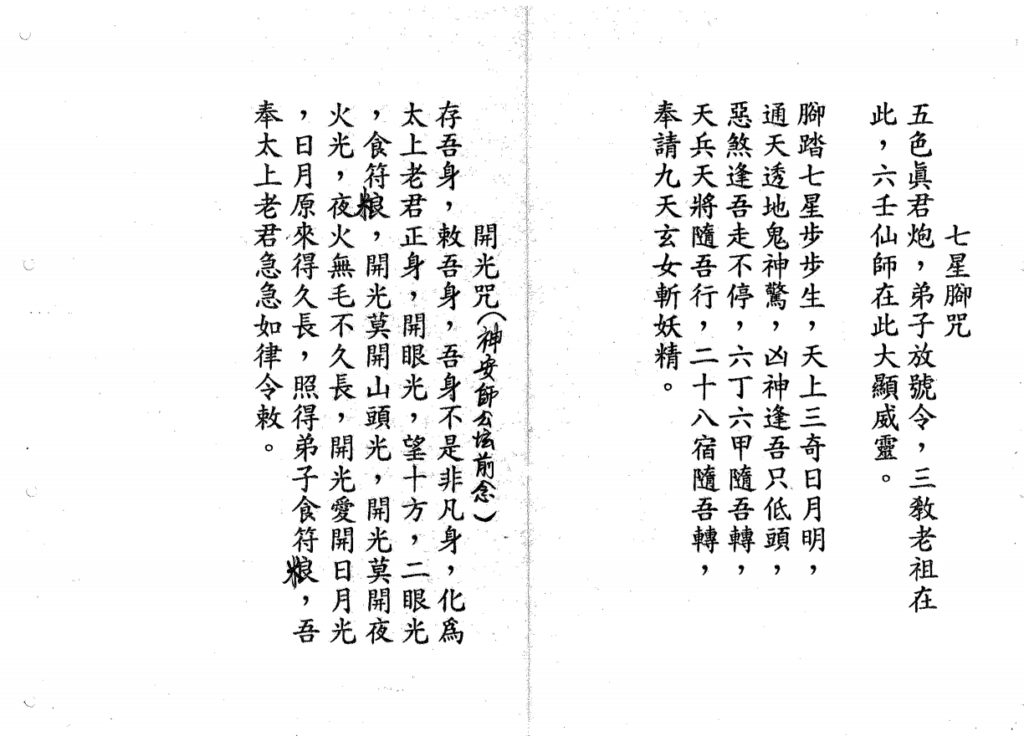 七星腳咒
五色眞君炮,弟子放號令,三教老祖在
此,六壬仙師在此大顯威靈。
腳踏七星步步生,天上三奇日月明,
通天透地鬼神驚,凶神逢吾只低頭,
惡煞逢吾走不停,六丁六甲隨吾轉,
天兵天將隨吾行,二十八宿隨吾轉,
奉請九天玄女斬妖精。
開光咒(神安師公坛前念)
存吾身,敕吾身,吾身不是非凡身,化爲
太上老君正身,開眼光,望十方,二眼光
,食符粮,開光莫開山頭光,開光莫開夜
火光,夜火無毛不久長,開光愛開日月光
,日月原來得久長,照得弟子食符粮,吾
奉太上老君急急如律令敕。